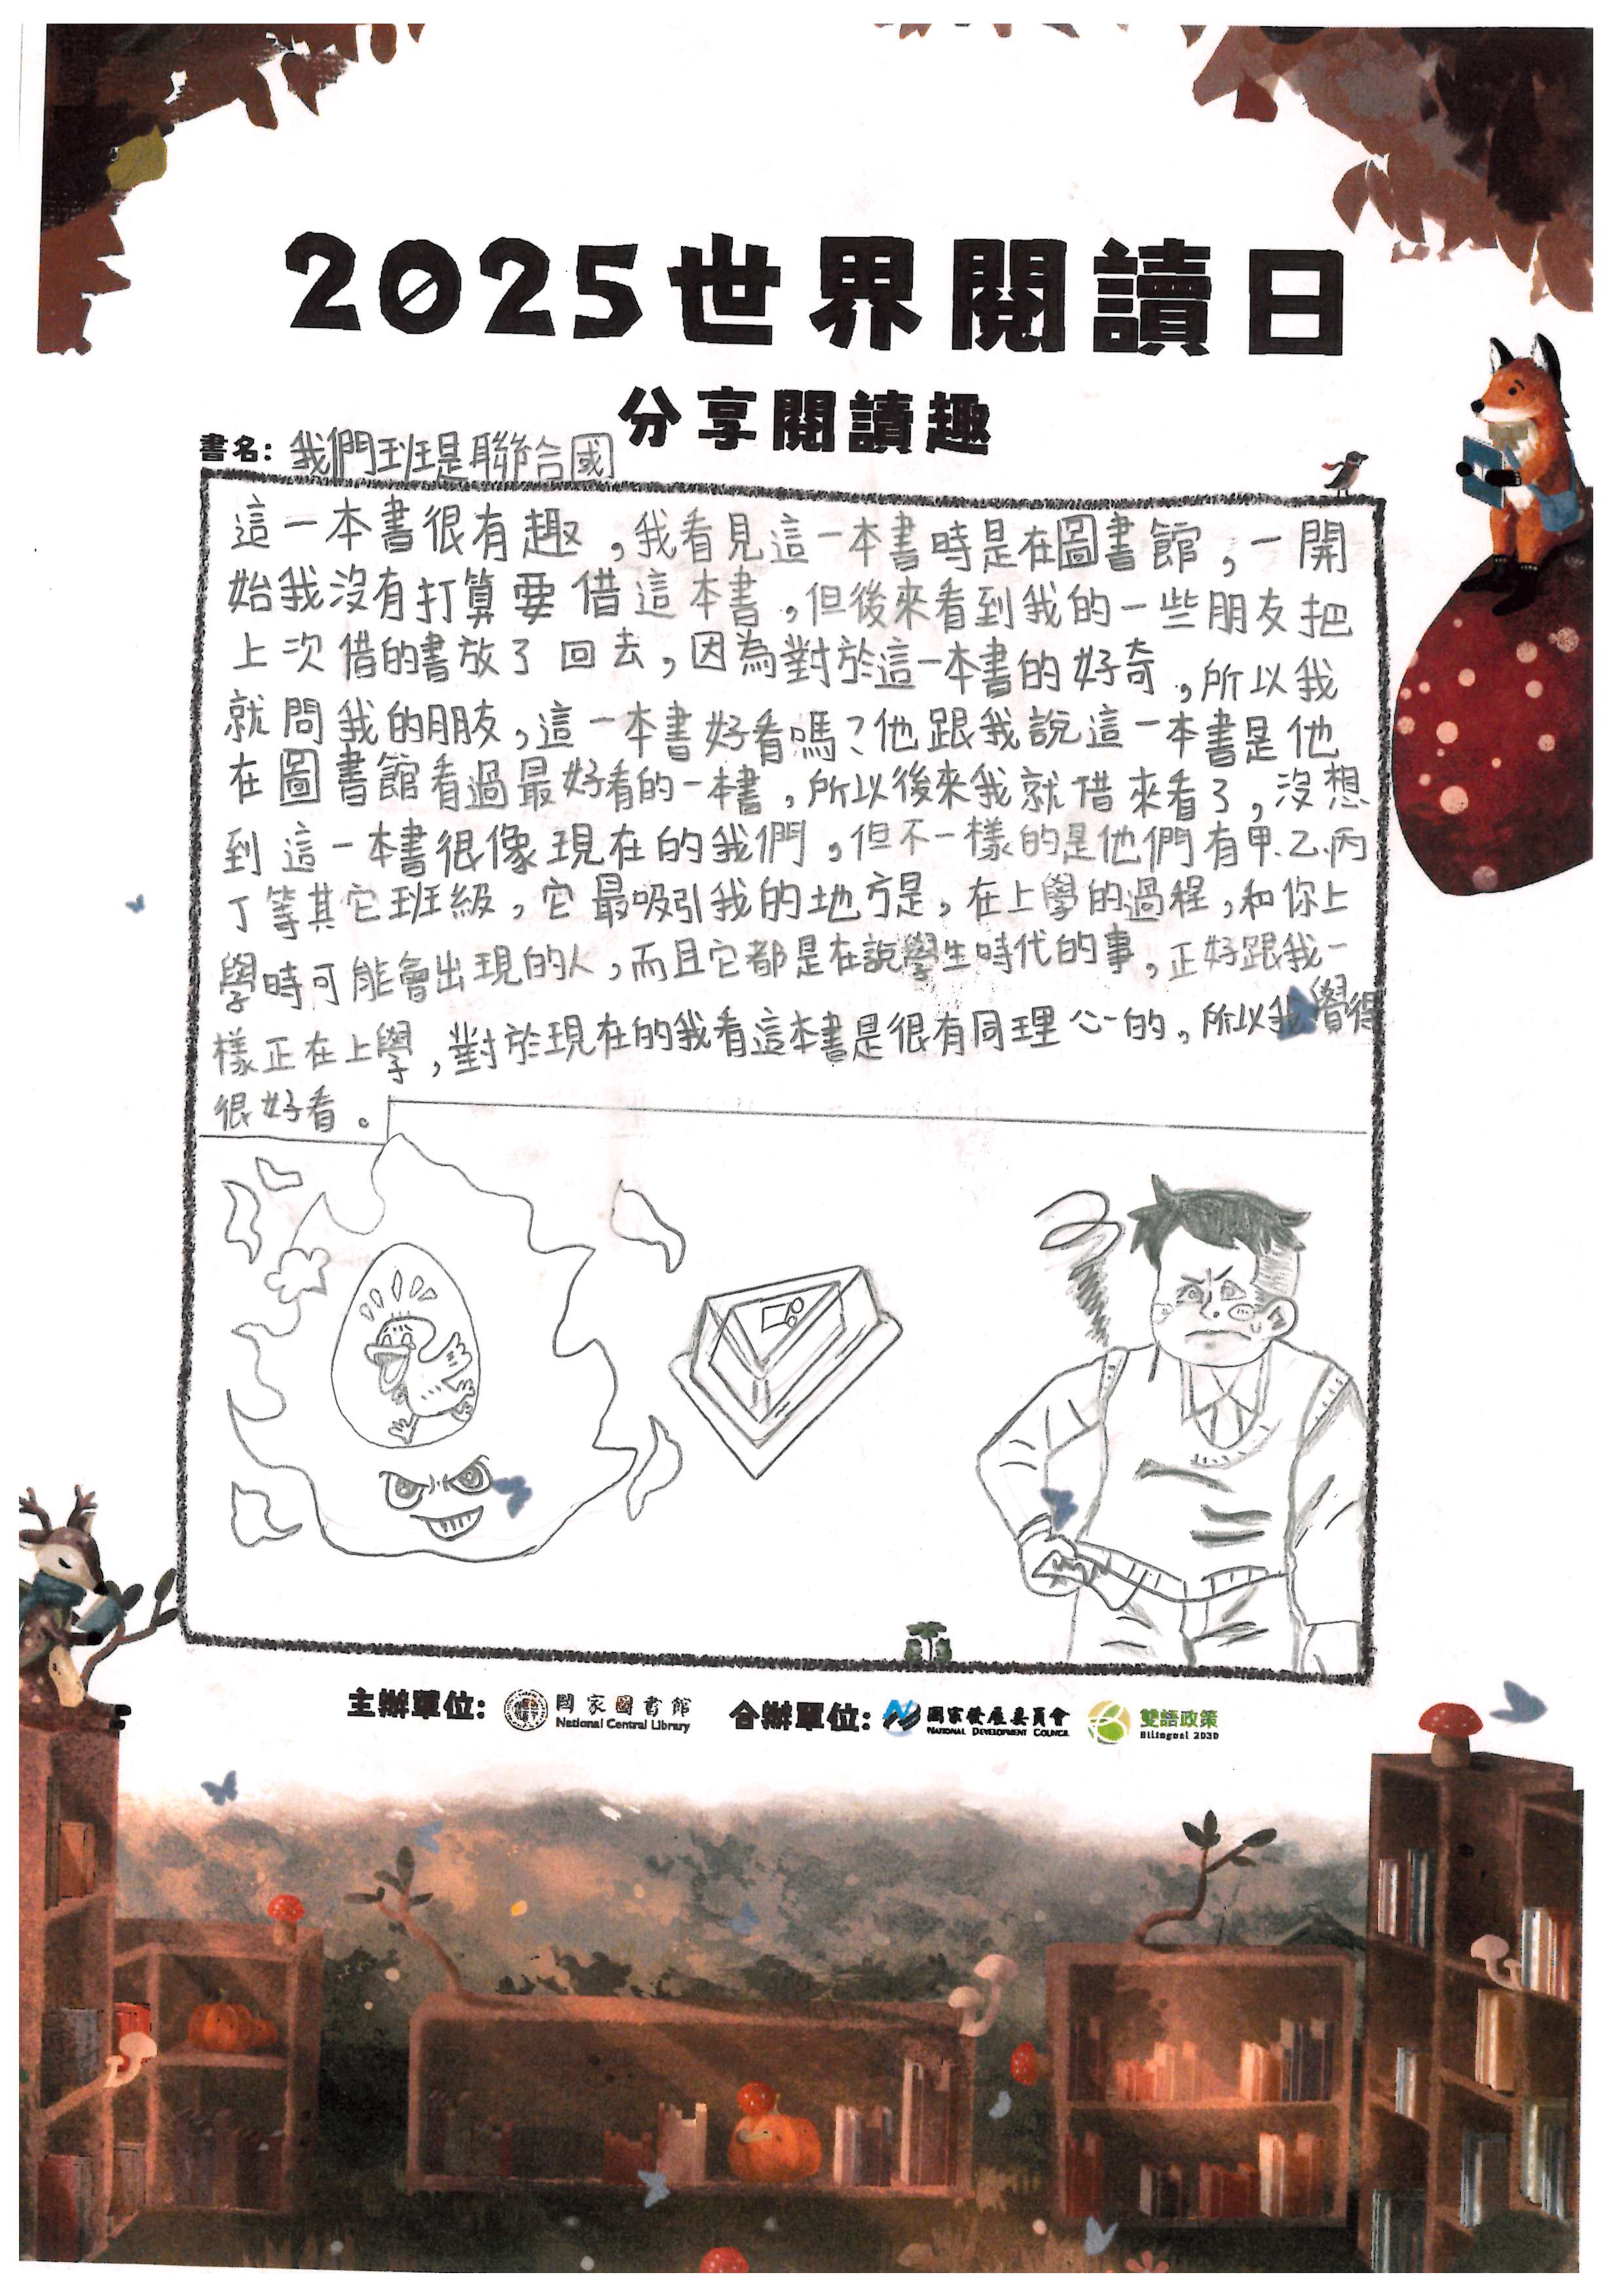 2025世界閱讀日
分享閱讀趣
書名：我們班是聯合國
這一本書很有趣，我看見這一本書時是在圖書館，一開
始我沒有打算要借這本書，但後來看到我的一些朋友把
上次借的書放了回去，因為對於這一本書的好奇，所以我
就問我的朋友，這一本書好看嗎？他跟我說這一本書是他
在圖書館看過最好看的一本書，所以後來我就借來看了，沒想
到這一本書很像現在的我們，但不一樣的是他們有甲.乙.丙
丁等其它班級，它最吸引我的地方是，在上學的過程，和你上
學時可能會出現的人，而且它都是在說學生時代的事，正好跟我一
樣正在上學，對於現在的我看這本書是很有同理心的，所以我覺得
很好看。
主辦單位：國家圖書館 合辦單位：國家發展委員會 雙語政策
National Central Library NATIONAL DEVELOPMENT COUNCIL Bilingual 2030